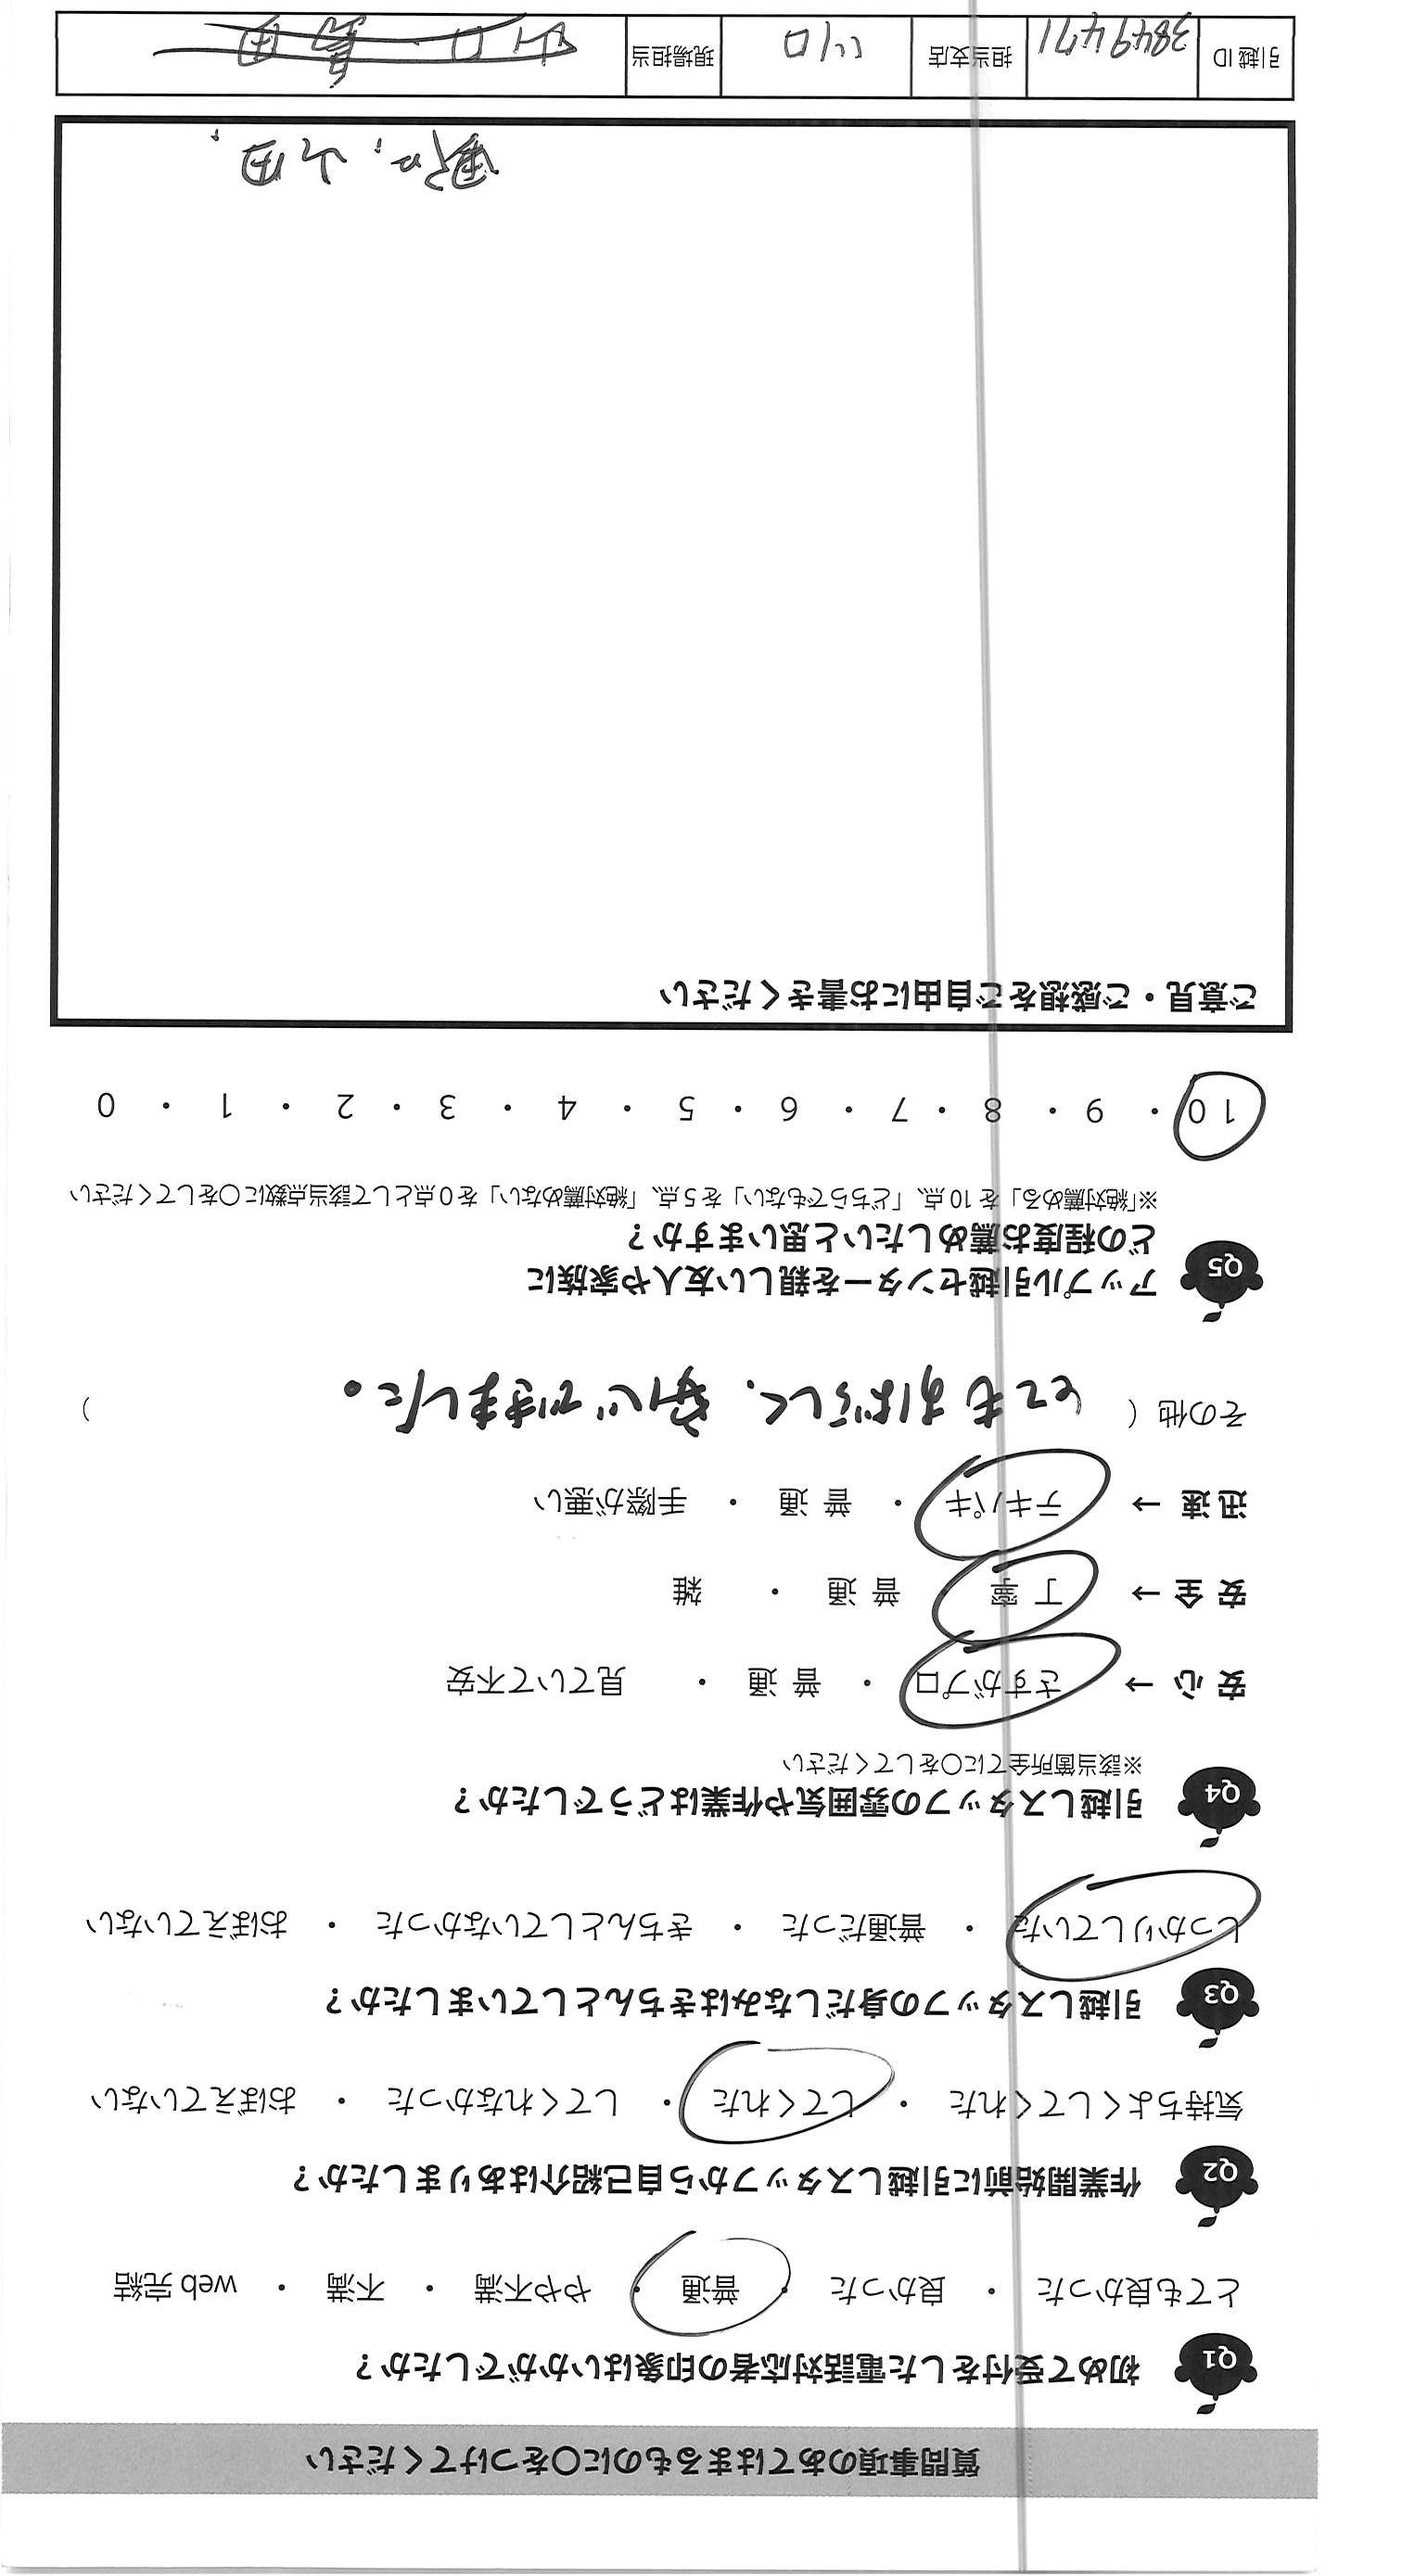 質問事項のあてはまるものに○をつけてください
Q1 初めて受付をした電話対応者の印象はいかがでしたか?
とても良かった ・ 良かった ・ 普通 ・ やや不満 ・ 不満 ・ web 完結
Q2 作業開始前に引越しスタッフから自己紹介はありましたか?
気持ちよくしてくれた ・ してくれた ・ してくれなかった ・ おぼえていない
Q3 引越しスタッフの身だしなみはきちんとしていましたか?
しっかりしていた ・ 普通だった ・ きちんとしていなかった ・ おぼえていない
Q4 引越しスタッフの雰囲気や作業はどうでしたか?
※該当箇所全てに○をしてください
安 心 → さすがプロ ・ 普 通 ・ 見ていて不安
安 全 → 丁 寧 普 通 ・ 雑
迅 速 → テキパキ ・ 普 通 ・ 手際が悪い
その他 ( とてもすばらしく、安心できました。 )
Q5 アップル引越センターを親しい友人や家族に
どの程度お薦めしたいと思いますか?
※「絶対薦める」を 10 点、「どちらでもない」を 5 点、「絶対薦めない」を 0 点として該当点数に○をしてください
10 ・ 9 ・ 8 ・ 7 ・ 6 ・ 5 ・ 4 ・ 3 ・ 2 ・ 1 ・ 0
ご意見・ご感想をご自由にお書きください
山田
引越 ID 3849471 担当支店 川口 現場担当